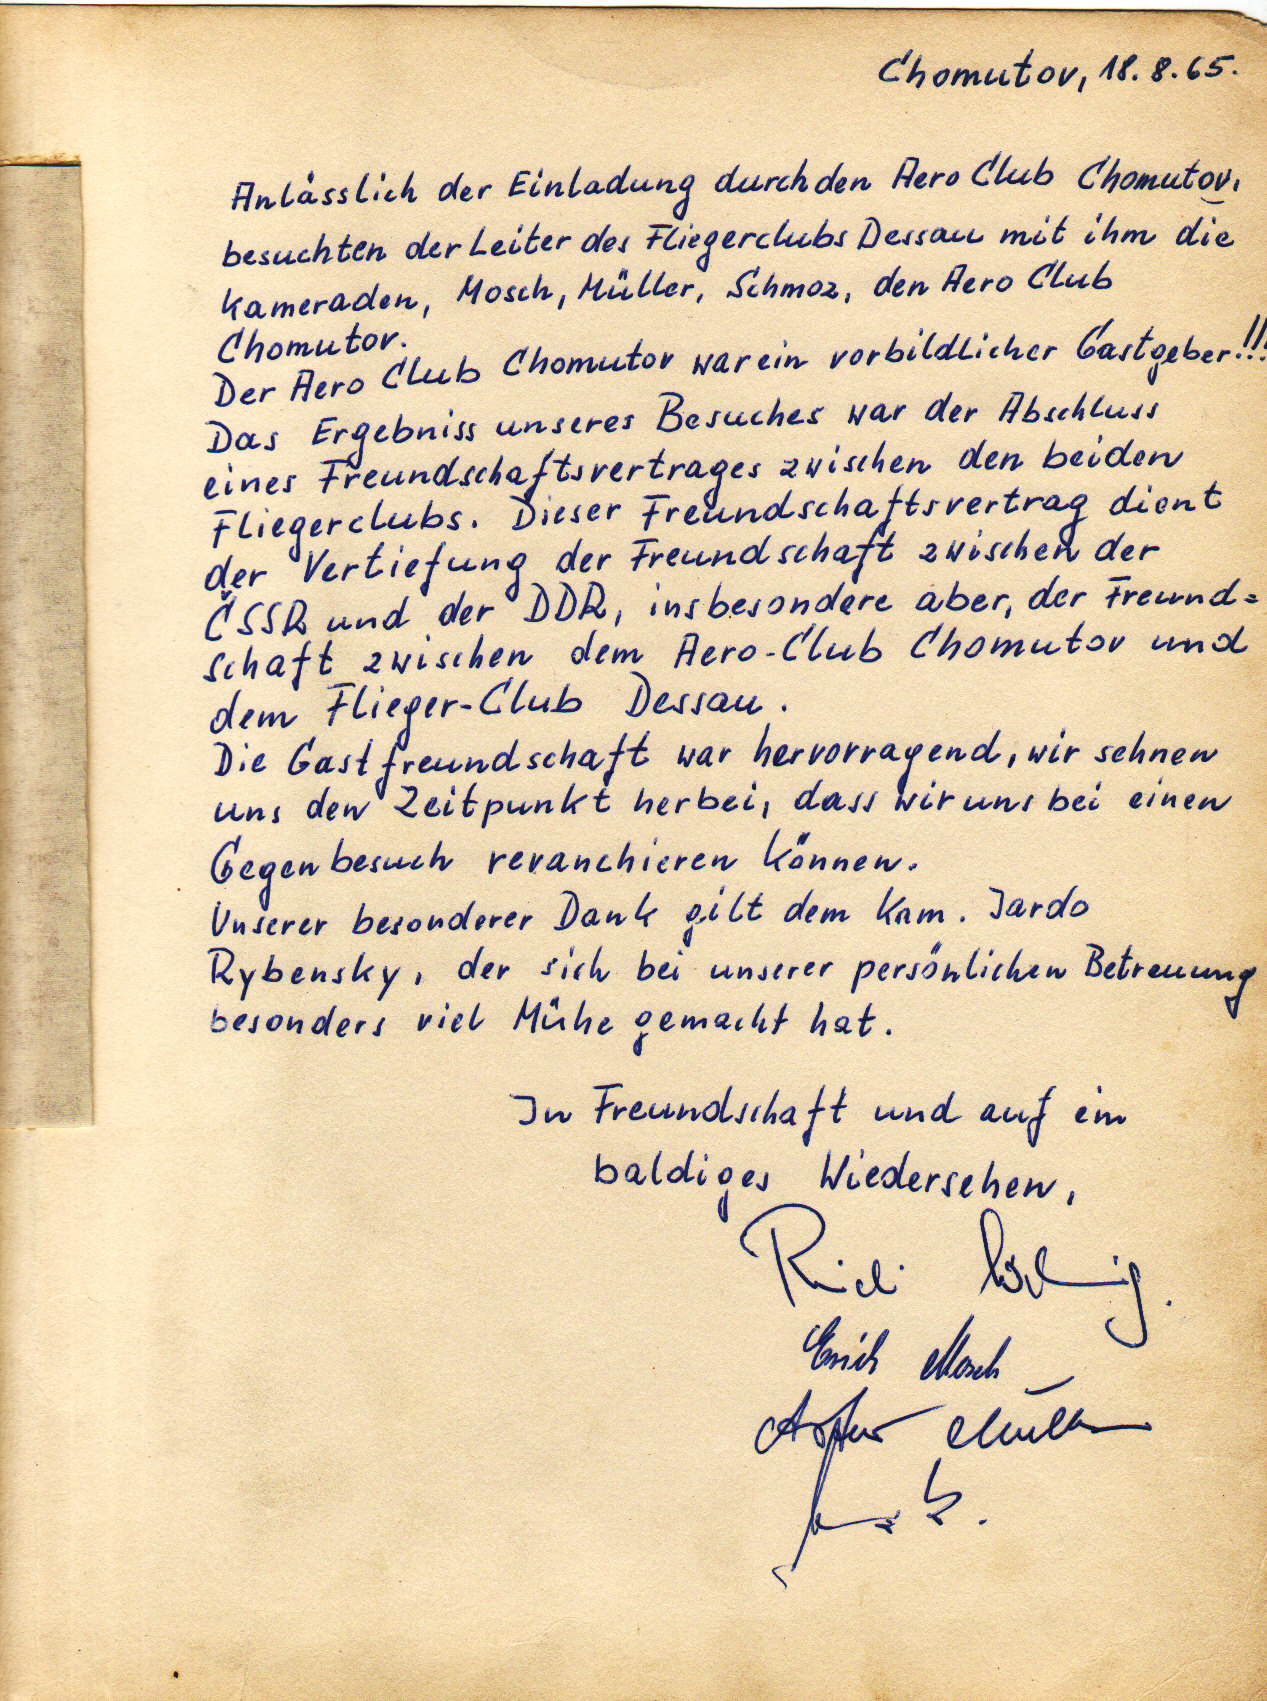 Chomutov, 18. 8. 65.
Anlässlich der Einladung durch den Aero Club Chomutov,
besuchten der Leiter des Fliegerclubs Dessau mit ihm die
Kameraden, Mosch, Müller, Schmoz, den Aero Club
Chomutov.
Der Aero Club Chomutov war ein vorbildlicher Gastgeber!!!
Das Ergebniss unseres Besuches war der Abschluss
eines Freundschaftsvertrages zwischen den beiden
Fliegerclubs. Dieser Freundschaftsvertrag dient
der Vertiefung der Freundschaft zwischen der
ČSSR und der DDR, insbesondere aber, der Freund=
schaft zwischen dem Aero-Club Chomutov und
dem Flieger-Club Dessau.
Die Gastfreundschaft war hervorragend, wir sehnen
uns den Zeitpunkt herbei, dass wir uns bei einen
Gegenbesuch revanchieren können.
Unserer besonderer Dank gilt dem Kam. Jardo
Rybensky, der sich bei unserer persönlichen Betreuung
besonders viel Mühe gemacht hat.
In Freundschaft und auf ein
baldiges Wiedersehen,
Erich Mosch
Müller